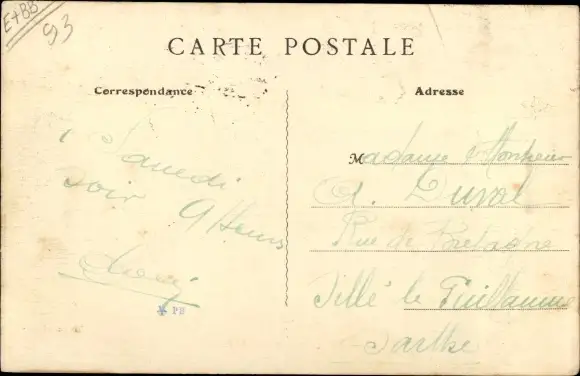 E+BB
93
CARTE POSTALE
Correspondance
Adresse
Samedi
soir 9 Heures
Madame & Monsieur
A. Duval
Rue de Bretagne
Sillé le Guillaume
Sarthe
PH